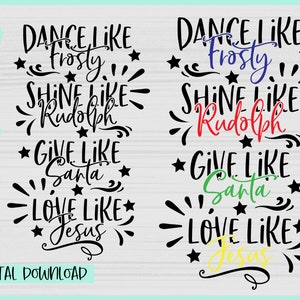 DANCE LIKE
Frosty
SHINE LIKE
Rudolph
GIVE LIKE
Santa
LOVE LIKE
Jesus
DANCE LIKE
Frosty
SHINE LIKE
Rudolph
GIVE LIKE
Santa
LOVE LIKE
Jesus
DOWNLOAD